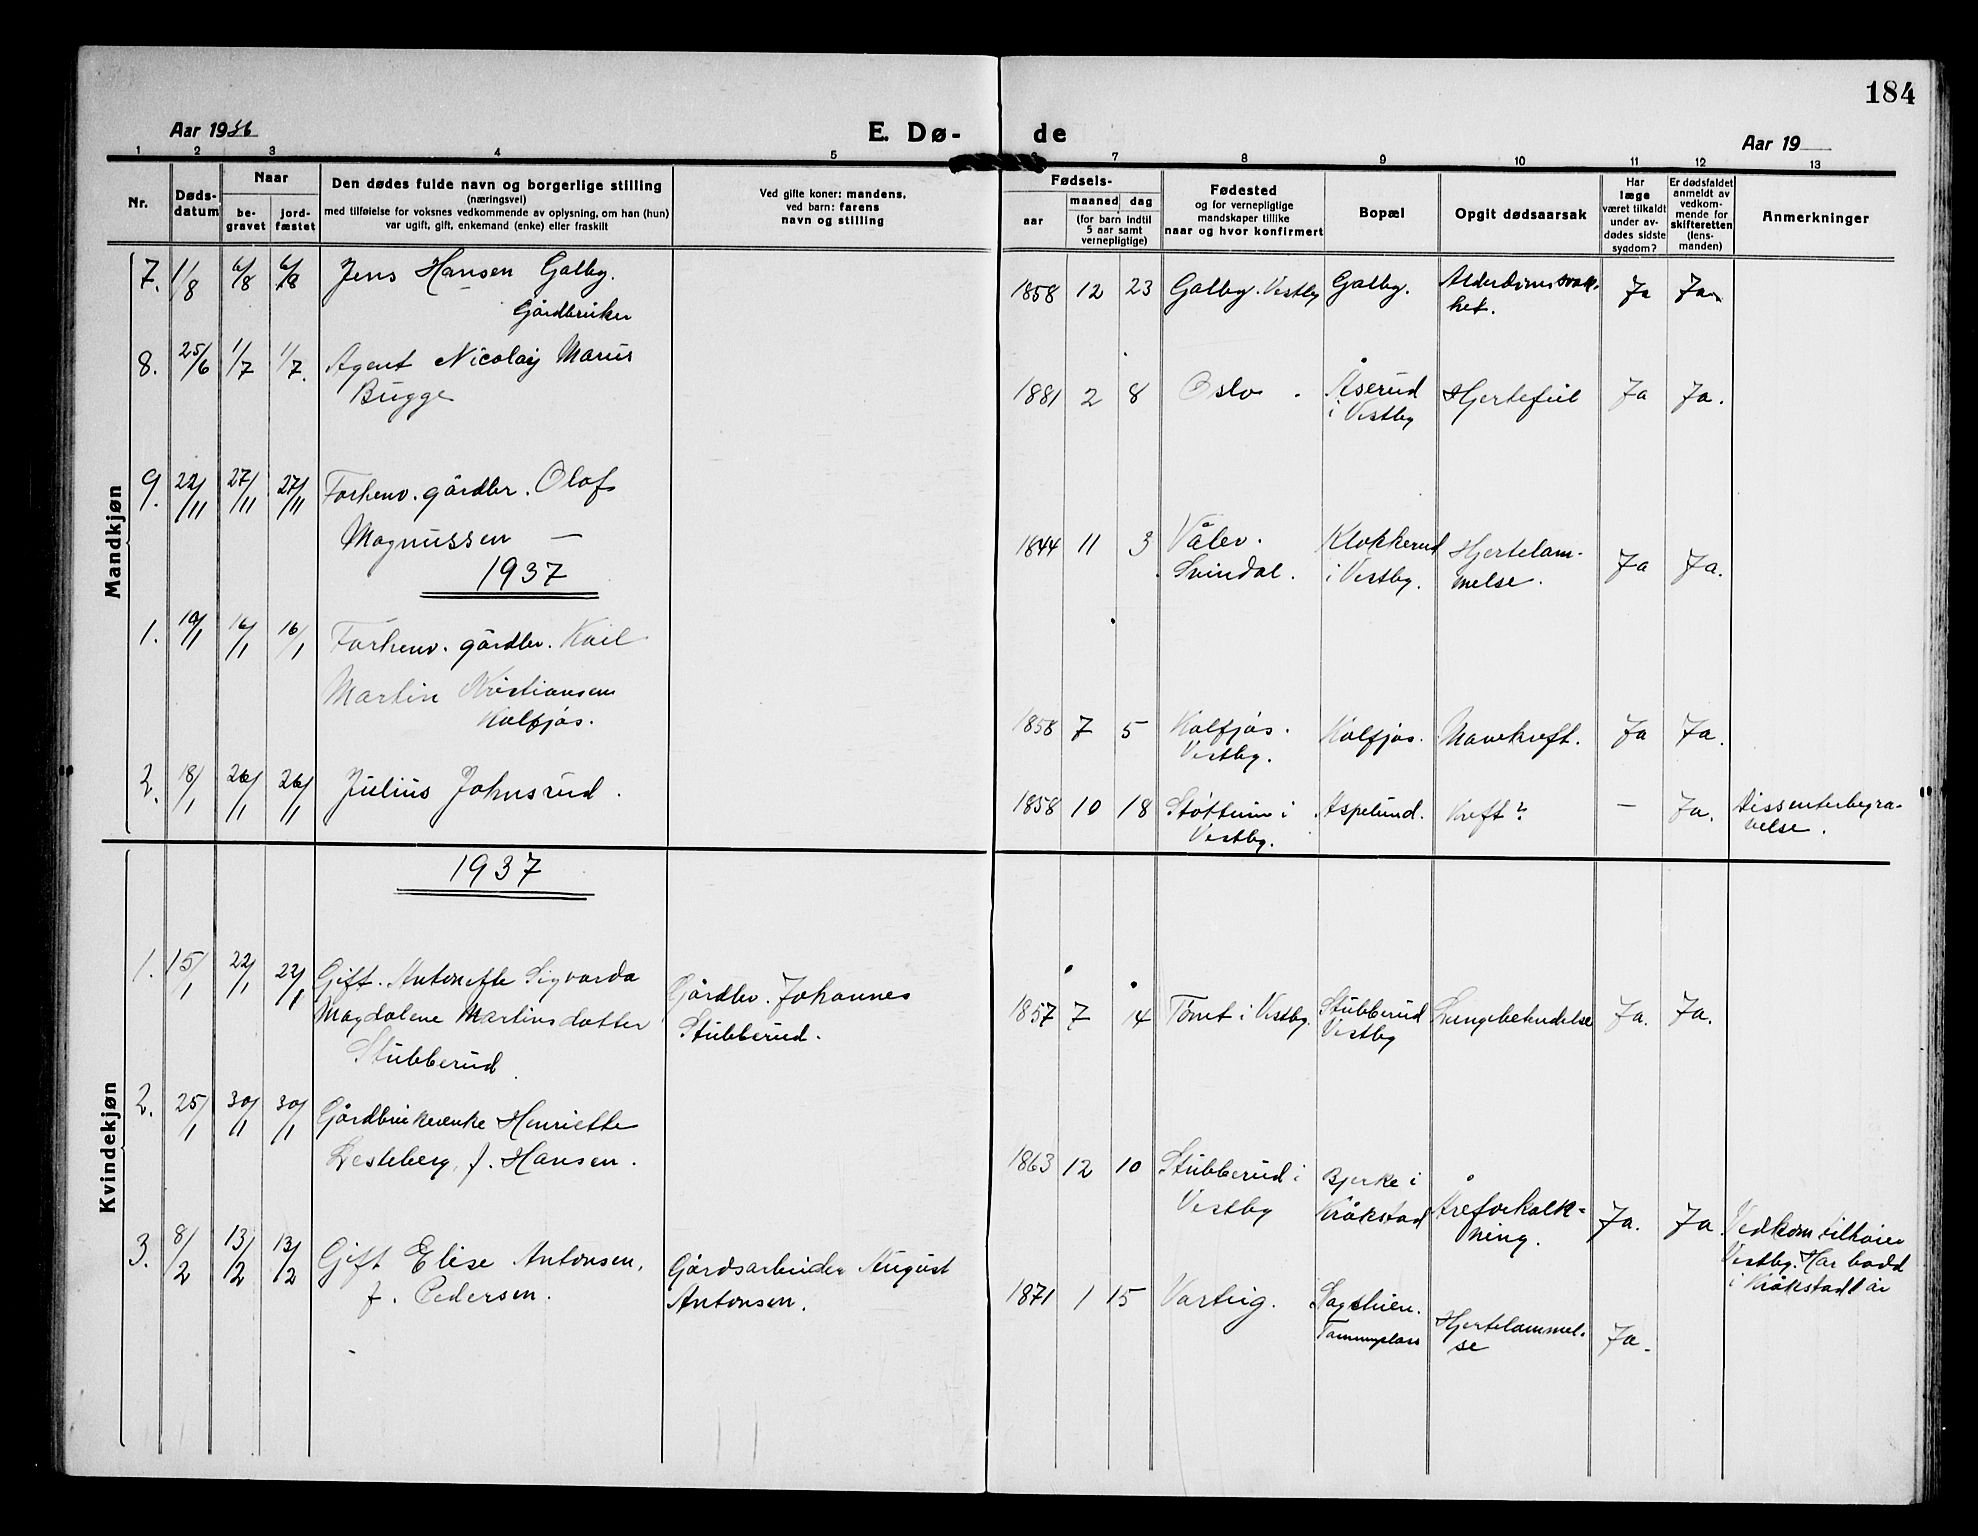 184
Aar 1936
E. Dø- de
Aar 19
1 2 3 4 5 7 8 9 10 11 12 13
Nr.
Døds-
datum
Naar
be-
gravet
jord-
fæstet
Den dødes fulde navn og borgerlige stilling
(næringsvei)
med tilføielse for voksnes vedkommende av oplysning, om han (hun)
var ugift, gift, enkemand (enke) eller fraskilt
Ved gifte koner: mandens,
ved barn: farens
navn og stilling
Fødsels-
aar
maaned dag
(for barn indtil
5 aar samt
vernepligtige)
Fødested
og for vernepligtige
mandskaper tillike
naar og hvor konfirmert
Bopæl
Opgit dødsaarsak
Har
læge
været tilkaldt
under av-
dødes sidste
sygdom?
Er dødsfaldet
anmeldt av
vedkom-
mende for
skifteretten
(lens-
manden)
Anmerkninger
Mandkjøn
7. 1/8 6/8 6/8 Jens Hansen Galby.
Gårdbruker
1858 12 23 Galby. Vestby Galby. Alderdomssvak-
het. Ja Ja
8. 25/6 1/7 1/7. Agent Nicolay Marius
Bugge
1881 2 8 Oslo. Åserud
i Vestby Hjertefeil Ja Ja.
9. 22/11 27/11 27/11 Forhenv. gårdbr. Olof
Magnussen —
1844 11 3 Våler.
Svindal. Klokkerud
i Vestby. Hjertelam-
melse. Ja Ja.
1937
1. 10/1 16/1 16/1 Forhenv. gårdbr. Karl
Martin Kristiansen
Kolfjøs.
1858 7 5 Kolfjøs.
Vestby. Kolfjøs. Mavekreft. Ja Ja.
2. 18/1 26/1 26/1 Julius Johnsrud.
1858 10 18 Støttum i
Vestby. Aspelund. Kreft? — Ja. Dissenterbegra-
velse.
Kvindekjøn
1937
1. 15/1 22/1 22/1 Gift. Antonette Sigvarda
Magdalene Martinsdatter
Stubberud
Gårdbr. Johannes
Stubberud.
1857 7 14 Tomt i Vestby. Stubberud
Vestby Lungebetendelse Ja. Ja.
2. 25/1 30/1 30/1 Gårdbrukerenke Henriette
Lesteberg, f. Hansen.
1863 12 10 Stubberud i
Vestby Bjerke i
Kråkstad Åreforkalk-
ning. Ja. Ja Vedkom. tilhører
Vestby. Har bodd
i Kråkstad 1 år
3. 8/2 13/2 13/2 Gift Elise Antonsen,
f. Pedersen.
Gårdsarbeider August
Antonsen.
1871 1 15 Varteig. Hjertelammel-
se Ja.